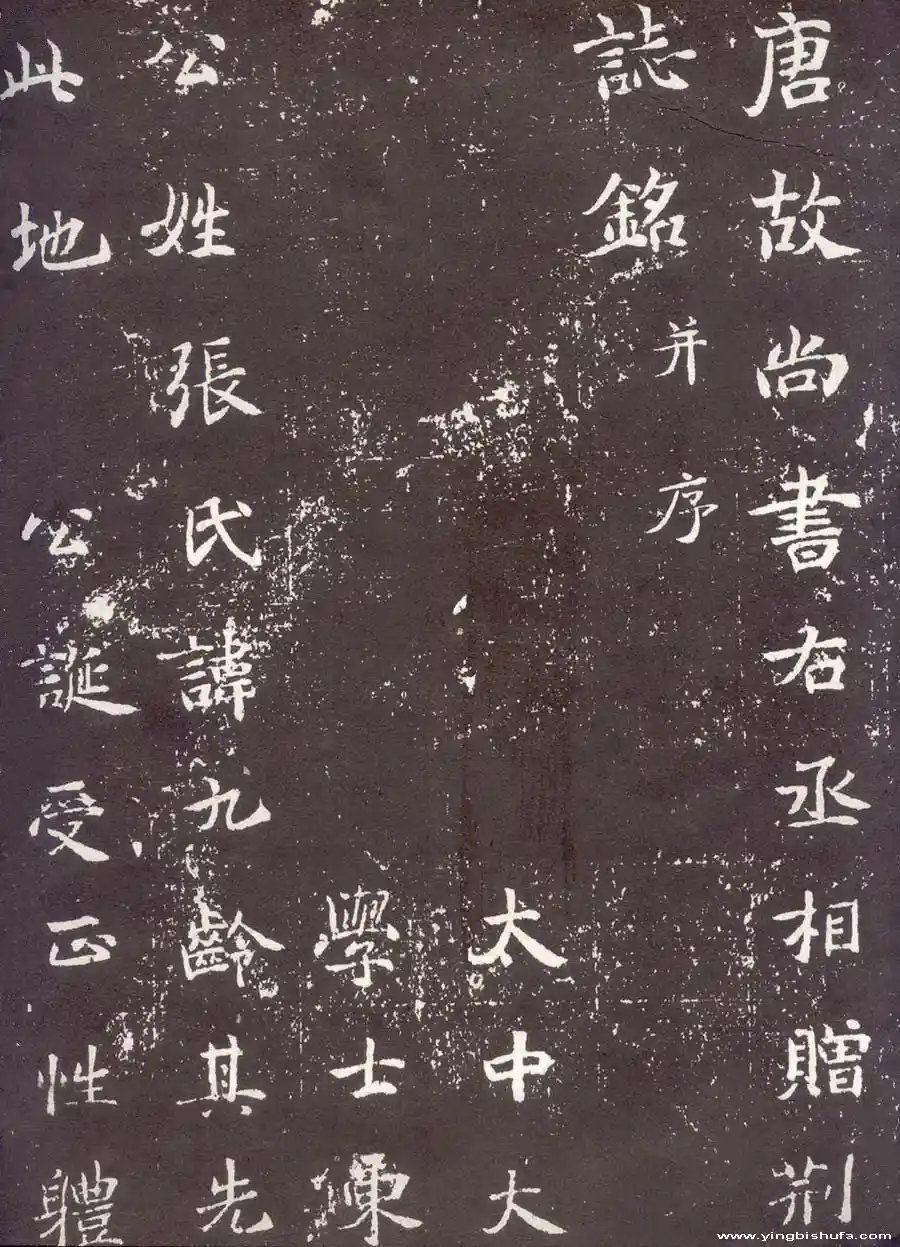 唐故尚書右丞相贈荊
誌銘并序
太中大
學士
公姓張氏諱九齡其先
此地公誕受正性體
www.yingbishufa.com